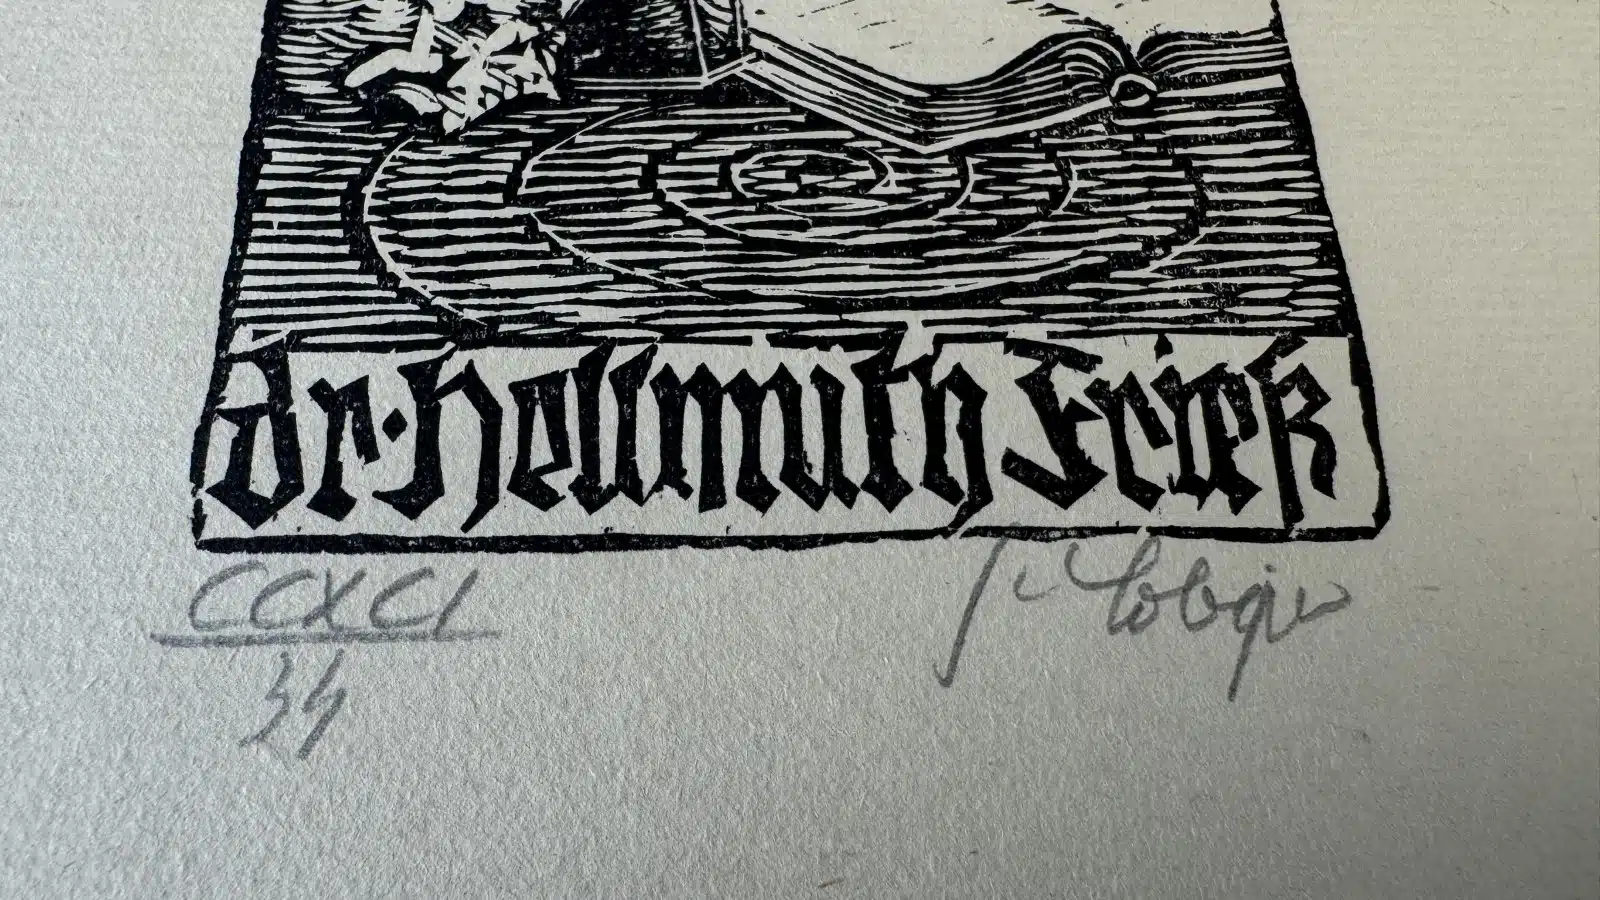 dr. Hellmuth Frieß
CCXCI
34